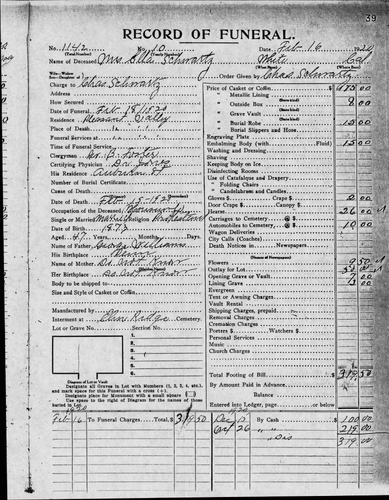 39
RECORD OF FUNERAL.
No. 1142 No. 10 Date Feb 16 1920
(Total Number) (Yearly Number)
Name of Deceased Mrs Ella Schwartz White Cal.
(What Race) (Where Born)
Charge to Chas Schwartz
Order Given by Chas Schwartz
Address
How Secured
Date of Funeral Feb 18/1920
Residence Pleasant Valley
Place of Death
Funeral Services at
Time of Funeral Service
Clergyman
Certifying Physician Dr. Jones
His Residence Auburn St
Number of Burial Certificate
Cause of Death
Date of Death Feb 15-1920
Occupation of the Deceased
Single or Married Married Religion
Date of Birth 1872
Aged 47 Years Months Days
Name of Father George Williams
His Birthplace
Name of Mother Do Not Know
(Maiden Name)
Her Birthplace Do Not Know
Body to be shipped to
Size and Style of Casket or Coffin
Manufactured by
Interment at Elm Ridge Cemetery
Lot or Grave No. Section No.
1
2
3
4
5
6
Diagram of Lot or Vault
Designate all Graves in Lot with Numbers (1, 2, 3, 4, etc.), and mark space for this Funeral with a cross (+).
Designate place for Monument with a small square
Use space to right of Diagram for the names of those buried in Lot.
Price of Casket or Coffin
" Metallic Lining
" Outside Box
" Grave Vault
" Burial Robe
" Burial Slippers and Hose
Engraving Plate
Embalming Body (with Fluid) 15 00
Washing and Dressing
Shaving
Keeping Body on Ice
Disinfecting Rooms
Use of Catafalque and Drapery
" Folding Chairs
" Candelabrum and Candles
Gloves $ Crape $ 2 00
Door Crape $ Gloves $
Hearse
Carriages to Cemetery @ $
Automobiles to Cemetery @ $ 10 00
Wagon Deliveries
City Calls (Coaches)
Death Notices in Newspapers
Flowers 9 50
Outlay for Lot
Opening Grave or Vault 7 00
Lining Grave
Evergreen
Tent or Awning Charges
Vault Rental
Shipping Charges, prepaid
Removal Charges
Cremation Charges
Porters $ Watchers $
Personal Services
Music
Church Charges
Total Footing of Bill $ 319.50
By Amount Paid in Advance
Balance
Entered into Ledger, page or below.
1920
Feb 16 To Funeral Charges. Total $ 319.50
1920
By Cash $ 100.00
Oct 26 " " 219.00
" Dis
319.00